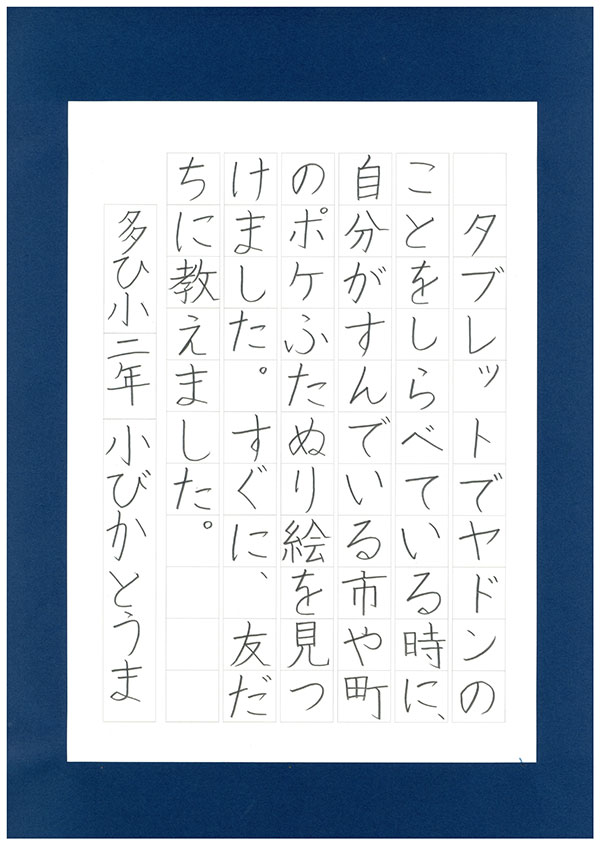 タブレットでヤドンの
ことをしらべている時に、
自分がすんでいる市や町
のポケふたぬり絵を見つ
けました。すぐに、友だ
ちに教えました。
多ひ小二年 小びかとうま